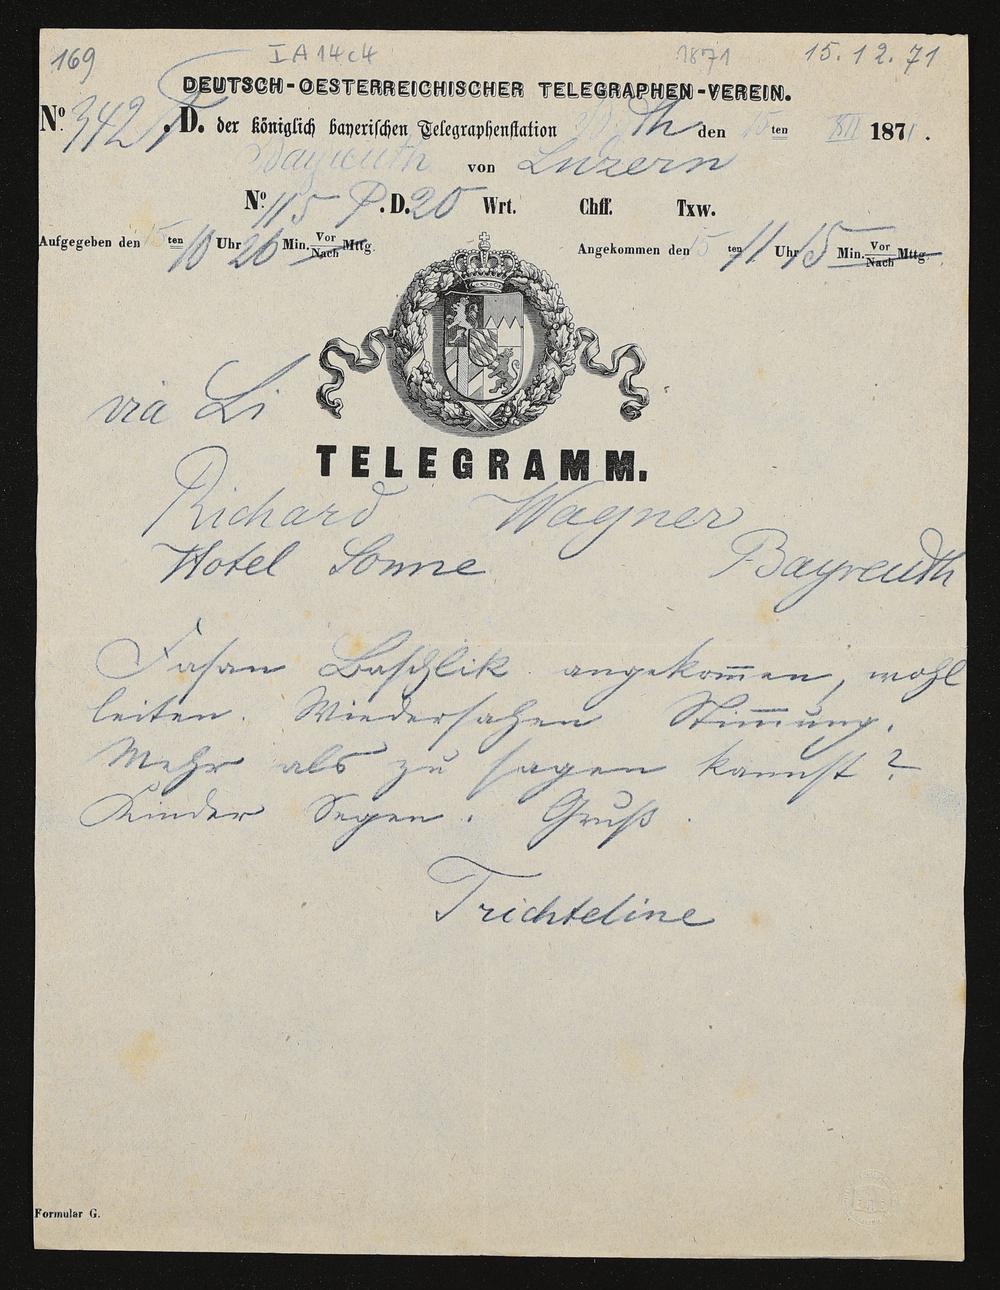 169 I A 14c4 1871 15.12.71
DEUTSCH-OESTERREICHISCHER TELEGRAPHEN-VEREIN.
No. 342 T. D. der königlich bayerischen Telegraphenstation Bth den 15ten XII 1871.
Bayreuth von Luzern
No. 115 P. D. 20 Wrt. Chff. Txw.
Aufgegeben den 15ten 10 Uhr 26 Min. Vor/Nach Mttg. Angekommen den 15ten 11 Uhr 15 Min. Vor/Nach Mttg.
via Li
TELEGRAMM.
Richard Wagner
Hotel Sonne Bayreuth
Fasan Baschlik angekommen, wohl
leiten. Wiedersahen Stimmung.
Mehr als zu sagen kannst?
Kinder Segen. Gruß.
Trichteline
Formular G.